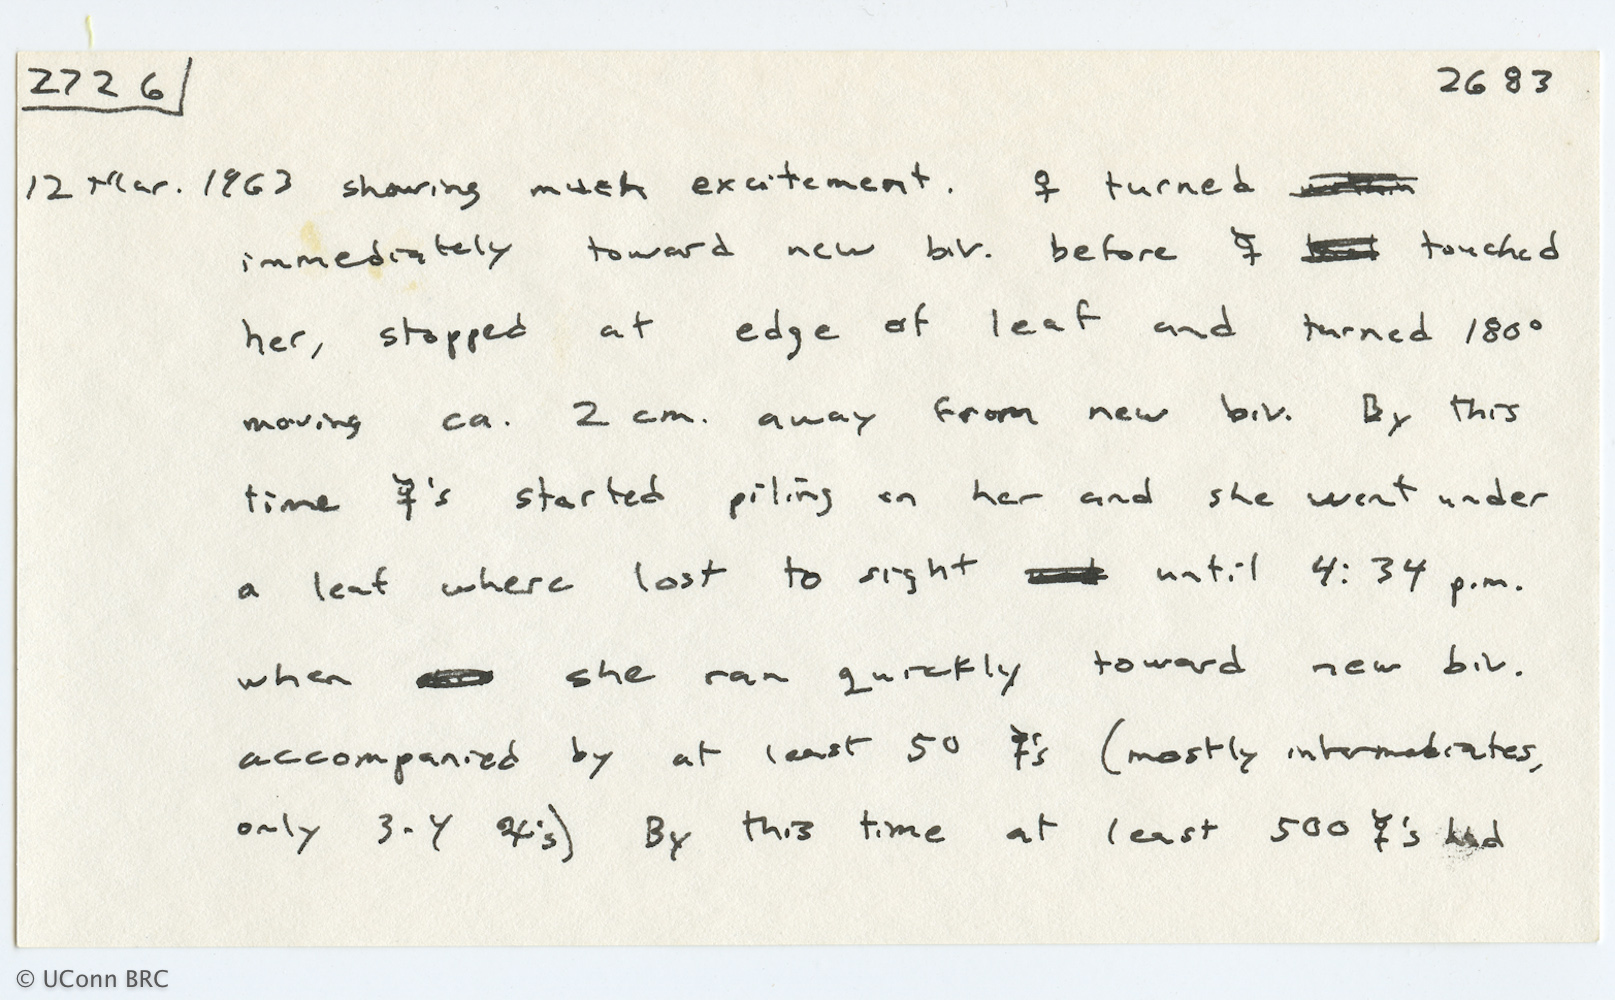 2726 2683
12 Mar. 1963 showing much excitement. ♀ turned
immediately toward new biv. before ☿ touched
her, stopped at edge of leaf and turned 180°
moving ca. 2 cm. away from new biv. By this
time ☿'s started piling on her and she went under
a leaf where lost to sight until 4:34 p.m.
when she ran quickly toward new biv.
accompanied by at least 50 ☿'s (mostly intermediates,
only 3-4 ♃'s) By this time at least 500 ☿'s had
© UConn BRC